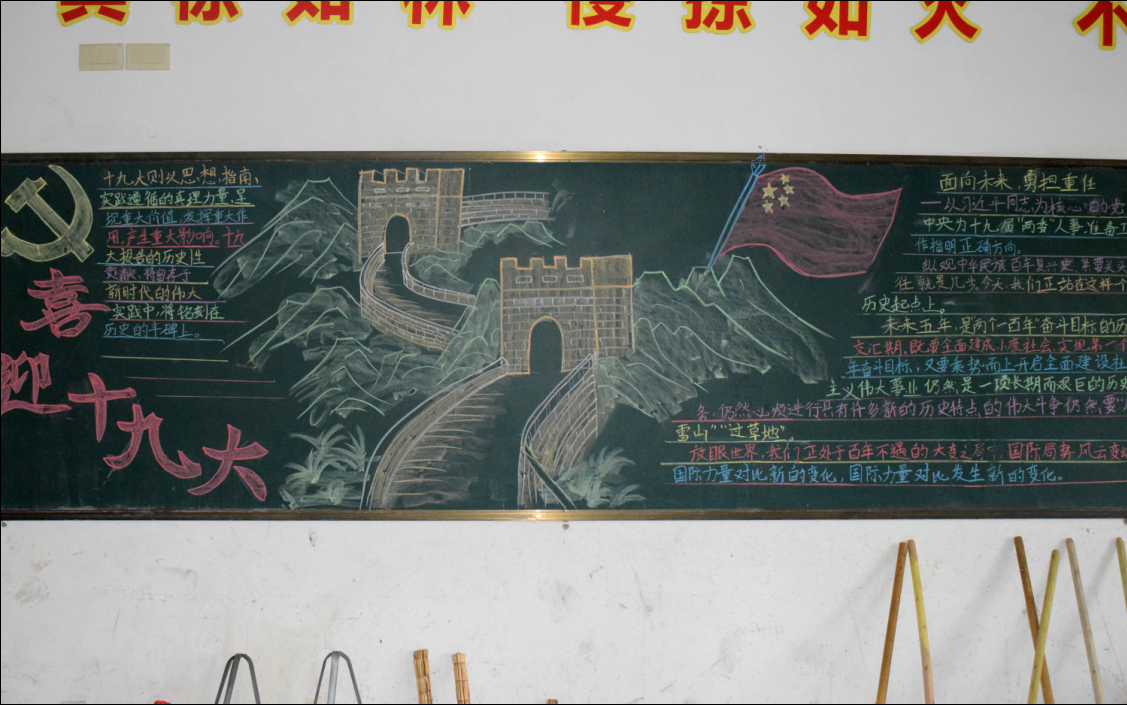 其徐如林 侵掠如火 不
十九大则以思想指南、
实践遵循的真理力量,呈
现重大价值,发挥重大作
用,产生重大影响。十九
大报告的历史性
贡献,将留善于
新时代的伟大
实践中,将铭刻在
历史的丰碑上。
喜迎十九大
面向未来,勇担重任
—以习近平同志为核心的党
中央为十九届“两委”人事准备工
作指明正确方向。
纵观中华民族百年复兴史,
往就是几步,今天,我们正站在这样一个
历史起点上。
未来五年,是“两个一百年”奋斗目标的历
交汇期,既要全面建成小康社会、实现第一个
年奋斗目标,又要乘势而上开启全面建设社
主义伟大事业仍然是一项长期而艰巨的历史
务,仍然必须进行具有许多新的历史特点的伟大斗争仍然要“
雪山”“过草地”。
放眼世界,我们正处于百年不遇的大变之局 国际局势风云变
国际力量对比新的变化,国际力量对比发生新的变化。